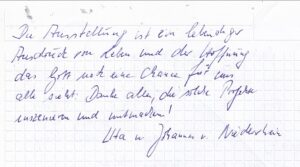 Die Ausstellung ist ein lebendiger
Ausdruck von Leben und der Hoffnung
das Gott noch eine Chance für uns
alle sieht. Danke allen, die solche Projekte
inszenieren und mitmachen!
Uta u. Johannes v. Niederrhein